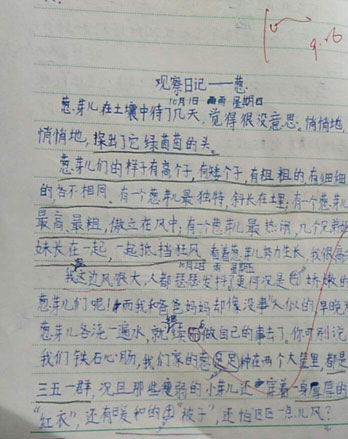 9.6
观察日记——葱
10月1日 雨 星期四
葱芽儿在土壤中待了几天,觉得很没意思,悄悄地,
悄悄地,探出了它绿茵茵的头。
葱芽儿们的样子有高个子,有矮个子,有粗粗的有细细
的各不相同。有一个葱芽儿最独特,斜长在土里;有一个葱芽儿
最高、最粗,傲立在风中;有一个葱芽儿最热闹,几个兄弟
妹长在一起,一起抵挡狂风。看着葱芽儿努力生长,我很高
10月2日 雨 星期
我这边风很大,人都瑟瑟发抖了更何况是娇嫩的
葱芽儿们呢!而我和爸爸妈妈却像没事人似的早晚
葱芽儿各浇一遍水,就做自己的事去了。你可别说
我们铁石心肠,我们家的葱是种在两个大里,都是
三五一群,况且那些瘦弱的小芽儿还穿着一身厚厚的
“红衣”,还有暖和的“被子”,还怕一点儿风?